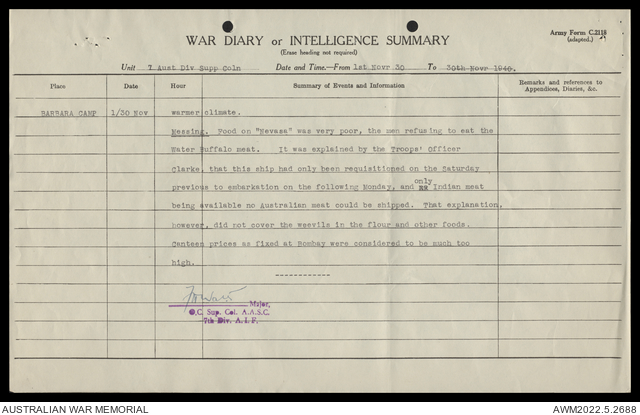 WAR DIARY or INTELLIGENCE SUMMARY
(Erase heading not required)
Army Form C.2118
(adapted.)
Unit 7 Aust Div Supp Coln Date and Time.—From 1st Novr 30 To 30th Novr 1940.
Place Date Hour Summary of Events and Information Remarks and references to Appendices, Diaries, &c.
BARBARA CAMP 1/30 Nov warmer climate.
Messing. Food on "Nevasa" was very poor, the men refusing to eat the
Water Buffalo meat. It was explained by the Troops' Officer
Clarke, that this ship had only been requisitioned on the Saturday
previous to embarkation on the following Monday, and only Indian meat
being available no Australian meat could be shipped. That explanation,
however, did not cover the weevils in the flour and other foods.
Canteen prices as fixed at Bombay were considered to be much too
high.
------------
Major,
O.C. Sup. Col. A.A.S.C.
7th Div. A.I.F.
AUSTRALIAN WAR MEMORIAL
AWM2022.5.2688